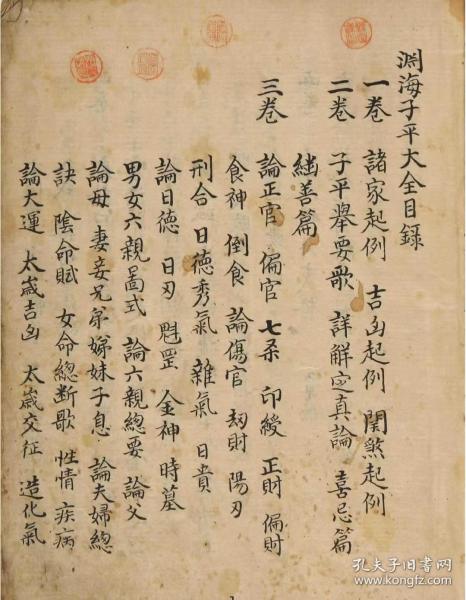 渊海子平大全目錄
一卷 諸家起例 吉凶起例 関煞起例
二卷 子平舉要歌 詳解定真論 喜忌篇
継善篇
三卷 論正官 偏官 七杀 印綬 正財 偏財
食神 倒食 論傷官 刼財 陽刃
刑合 日德秀氣 雜氣 日貴
論日德 日刃 魁罡 金神 時墓
男女六親啚式 論六親總要 論父
論母 妻妾兄弟娣妹子息 論夫婦總
訣 陰命賦 女命總断歌 性情 疾病
論大運 太歲吉凶 太歲交征 造化氣
孔夫子旧書网
www.kongfz.com